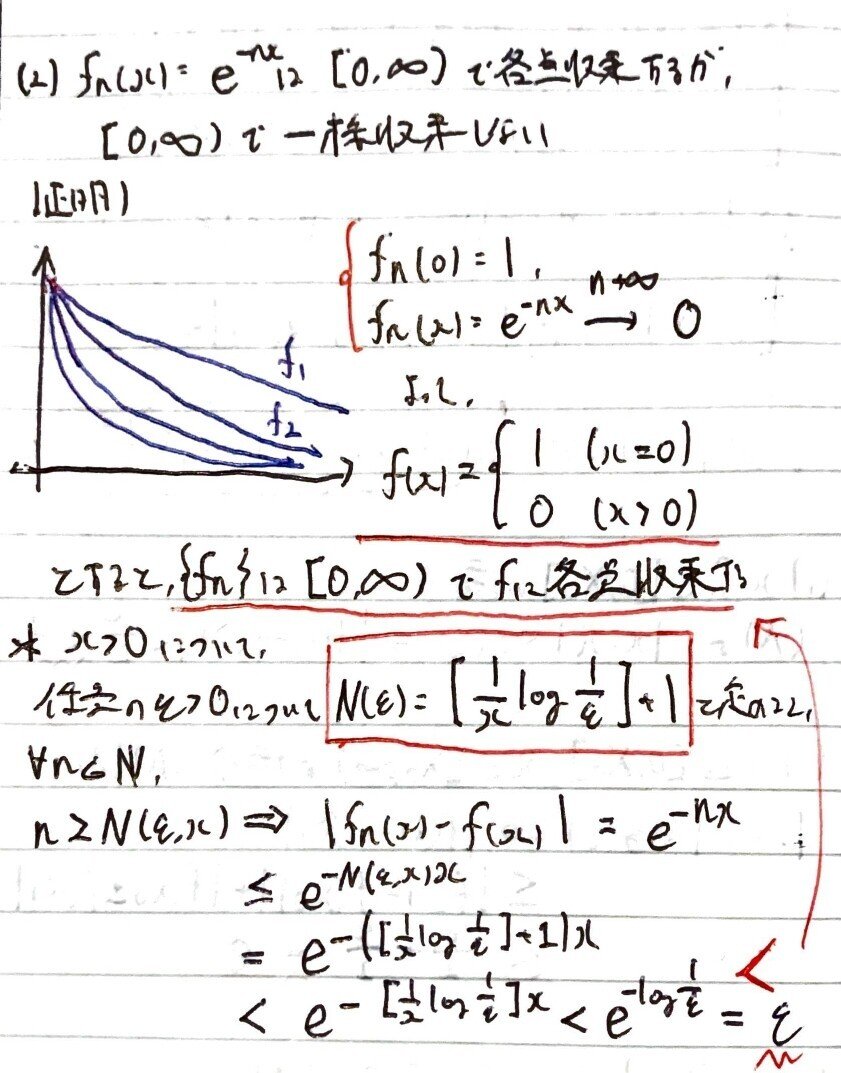 (2) fn(x) = e^{-nx} は [0,∞) で各点収束するが,
[0,∞) で 一様収束しない
証明)
fn(0) = 1,
fn(x) = e^{-nx} →(n→∞) 0
よって,
f1
f2
f(x) = { 1 (x=0)
0 (x>0)
とすると, {fn} は [0,∞) で fに各点収束する
* x>0 について,
任意の ε>0 について N(ε) = [1/x log 1/ε] + 1 と定めると,
∀n∈N,
n ≥ N(ε,x) ⇒ |fn(x) - f(x)| = e^{-nx}
≤ e^{-N(ε,x)x}
= e^{-([1/x log 1/ε]+1)x}
< e^{-[1/x log 1/ε]x} < e^{-log 1/ε} = ε